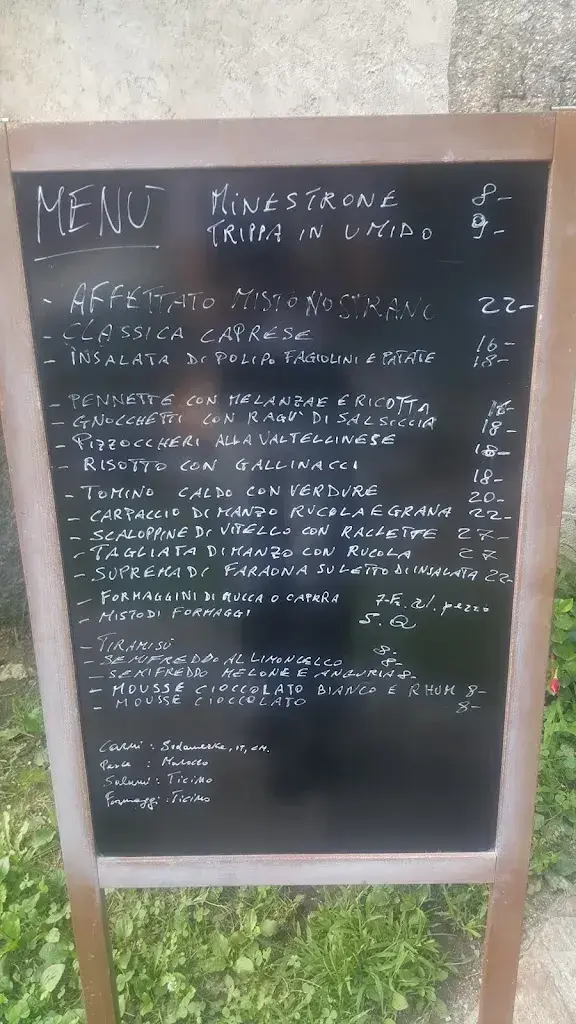 MENÙ
MINESTRONE 8-
TRIPPA IN UMIDO 9-
- AFFETTATO MISTO NOSTRANO 22-
- CLASSICA CAPRESE 16-
- INSALATA DI POLIPO FAGIOLINI E PATATE 18-
- PENNETTE CON MELANZAE E RICOTTA 16-
- GNOCCHETTI CON RAGÙ DI SALSICCIA 18-
- PIZZOCCHERI ALLA VALTELLINESE 18-
- RISOTTO CON GALLINACCI 18-
- TOMINO CALDO CON VERDURE 20-
- CARPACCIO DI MANZO RUCOLA E GRANA 22-
- SCALOPPINE DI VITELLO CON RACLETTE 27-
- TAGLIATA DI MANZO CON RUCOLA 27
- SUPREMA DI FARAONA SU LETTO DI INSALATA 22-
- FORMAGGINI DI MUCCA O CAPRA 7-Fr. al. pezzo
- MISTO DI FORMAGGI S.Q
- TIRAMISÙ 8-
- SEMIFREDDO AL LIMONCELLO 8-
- SEMIFREDDO MELONE E ANGURIA 8-
- MOUSSE CIOCCOLATO BIANCO E RHUM 8-
- MOUSSE CIOCCOLATO 8-
Carni : IT, CH.
: Marocco
Salumi : Ticino
Formaggi : Ticino